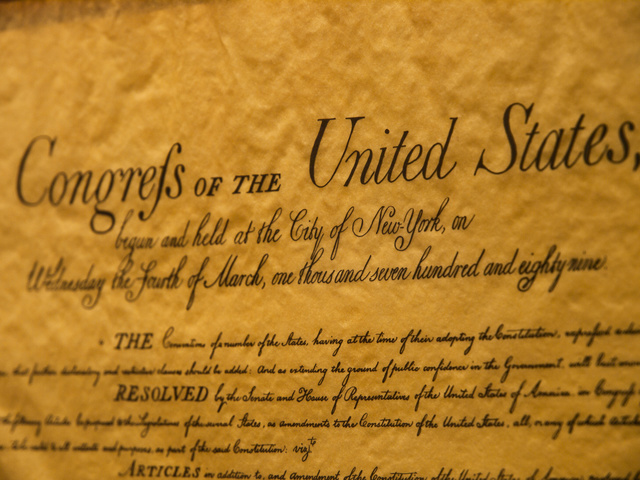 Congreſs OF THE United States,
begun and held at the City of New-York, on
Wednesday the Fourth of March, one thousand seven hundred and eighty nine.
THE Conventions of a number of the States, having at the time of their adopting the Constitution, expressed
that further declaratory and restrictive clauses should be added: And as extending the ground of public confidence in the Government, will best
RESOLVED by the Senate and House of Representatives of the United States of America, in Congress
the following Articles be proposed to the Legislatures of the several States, as amendments to the Constitution of the United States, all, or any of which articles
to be valid to all intents and purposes, as part of the said Constitution; vizt
ARTICLES in addition to, and amendment of the Constitution of the United States of America